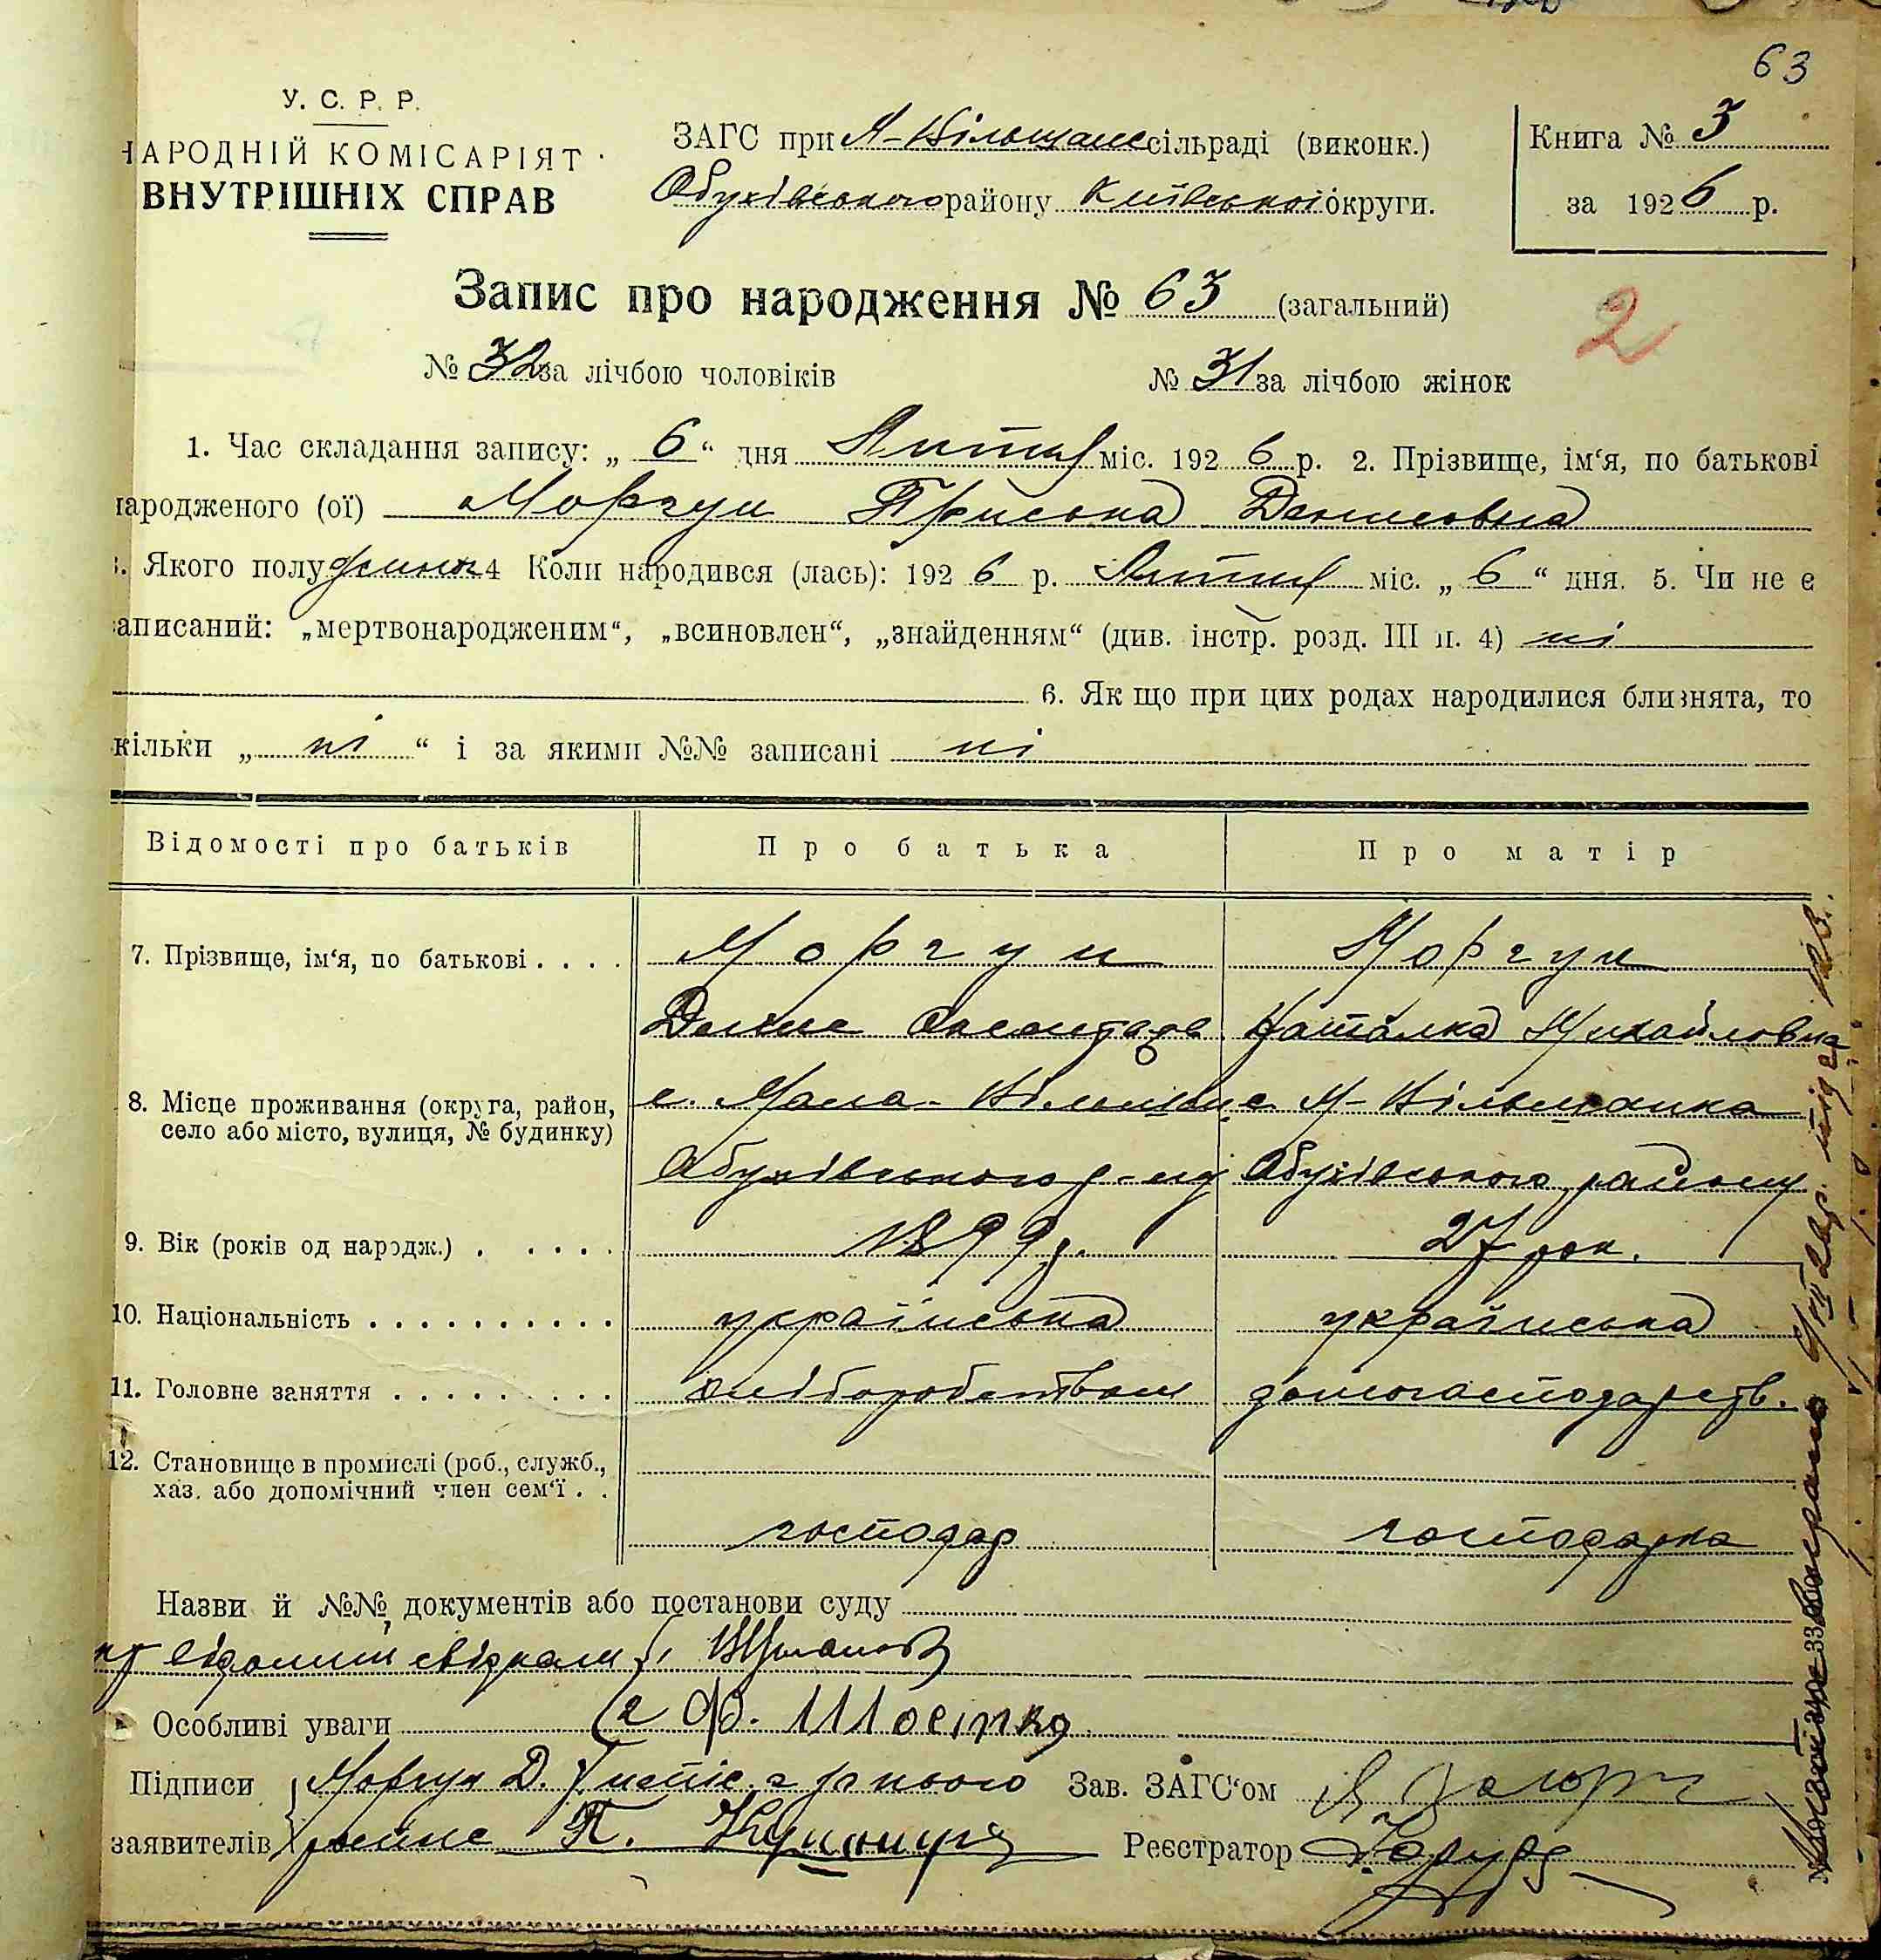 63
У. С. Р. Р.
НАРОДНІЙ КОМІСАРІЯТ
ВНУТРІШНІХ СПРАВ
ЗАГС при М-Вільшанс сільраді (виконк.)
Обухівського району Київської округи.
Книга № 3
за 1926 р.
Запис про народження № 63 (загальний)
2
№ 32 за лічбою чоловіків
№ 31 за лічбою жінок
1. Час складання запису: „ 6 “ дня Липня міс. 1926 р. 2. Прізвище, ім‘я, по батькові
народженого (ої) Моргун Приська Денисовна
3. Якого полу жиноч 4 Коли народився (лась): 1926 р. Липня міс. „ 6 “ дня. 5. Чи не є
записаний: „мертвонародженим“, „всиновлен“, „знайденням“ (див. інстр. розд. III п. 4) ні
6. Як що при цих родах народилися близнята, то
кільки „ ні “ і за якими №№ записані ні
Відомості про батьків
Про батька
Про матір
7. Прізвище, ім‘я, по батькові
Моргун
Моргун
Денис
Наталка Михайловна
8. Місце проживання (округа, район,
село або місто, вулиця, № будинку)
с. Мала-Вільшанк
с М-Вільшанка
Обухівського р-ну
Обухівського району
9. Вік (років од нардж.)
1899 р.
27 рок.
10. Національність
українська
українська
11. Головне заняття
хліборобством
домогосподарств.
12. Становище в промислі (роб., служб.,
хаз. або допомічний член сем‘ї
господар
господарка
Назви й №№ документів або постанови суду
відомими свідками 1,
Особливі уваги
2 Ф. Шосірко
Підписи Моргун Д. за нього
заявителів П.
Зав. ЗАГС‘ом
Реєстратор